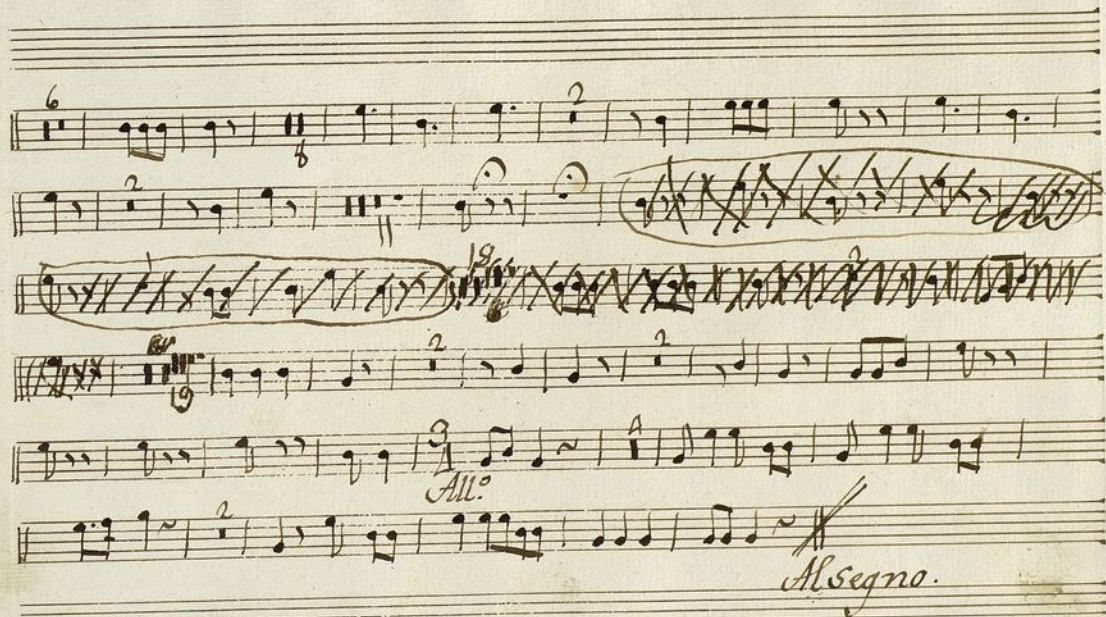 6 8 2
2
18 2
19 2 2
3 4
All.º
2
Al segno.